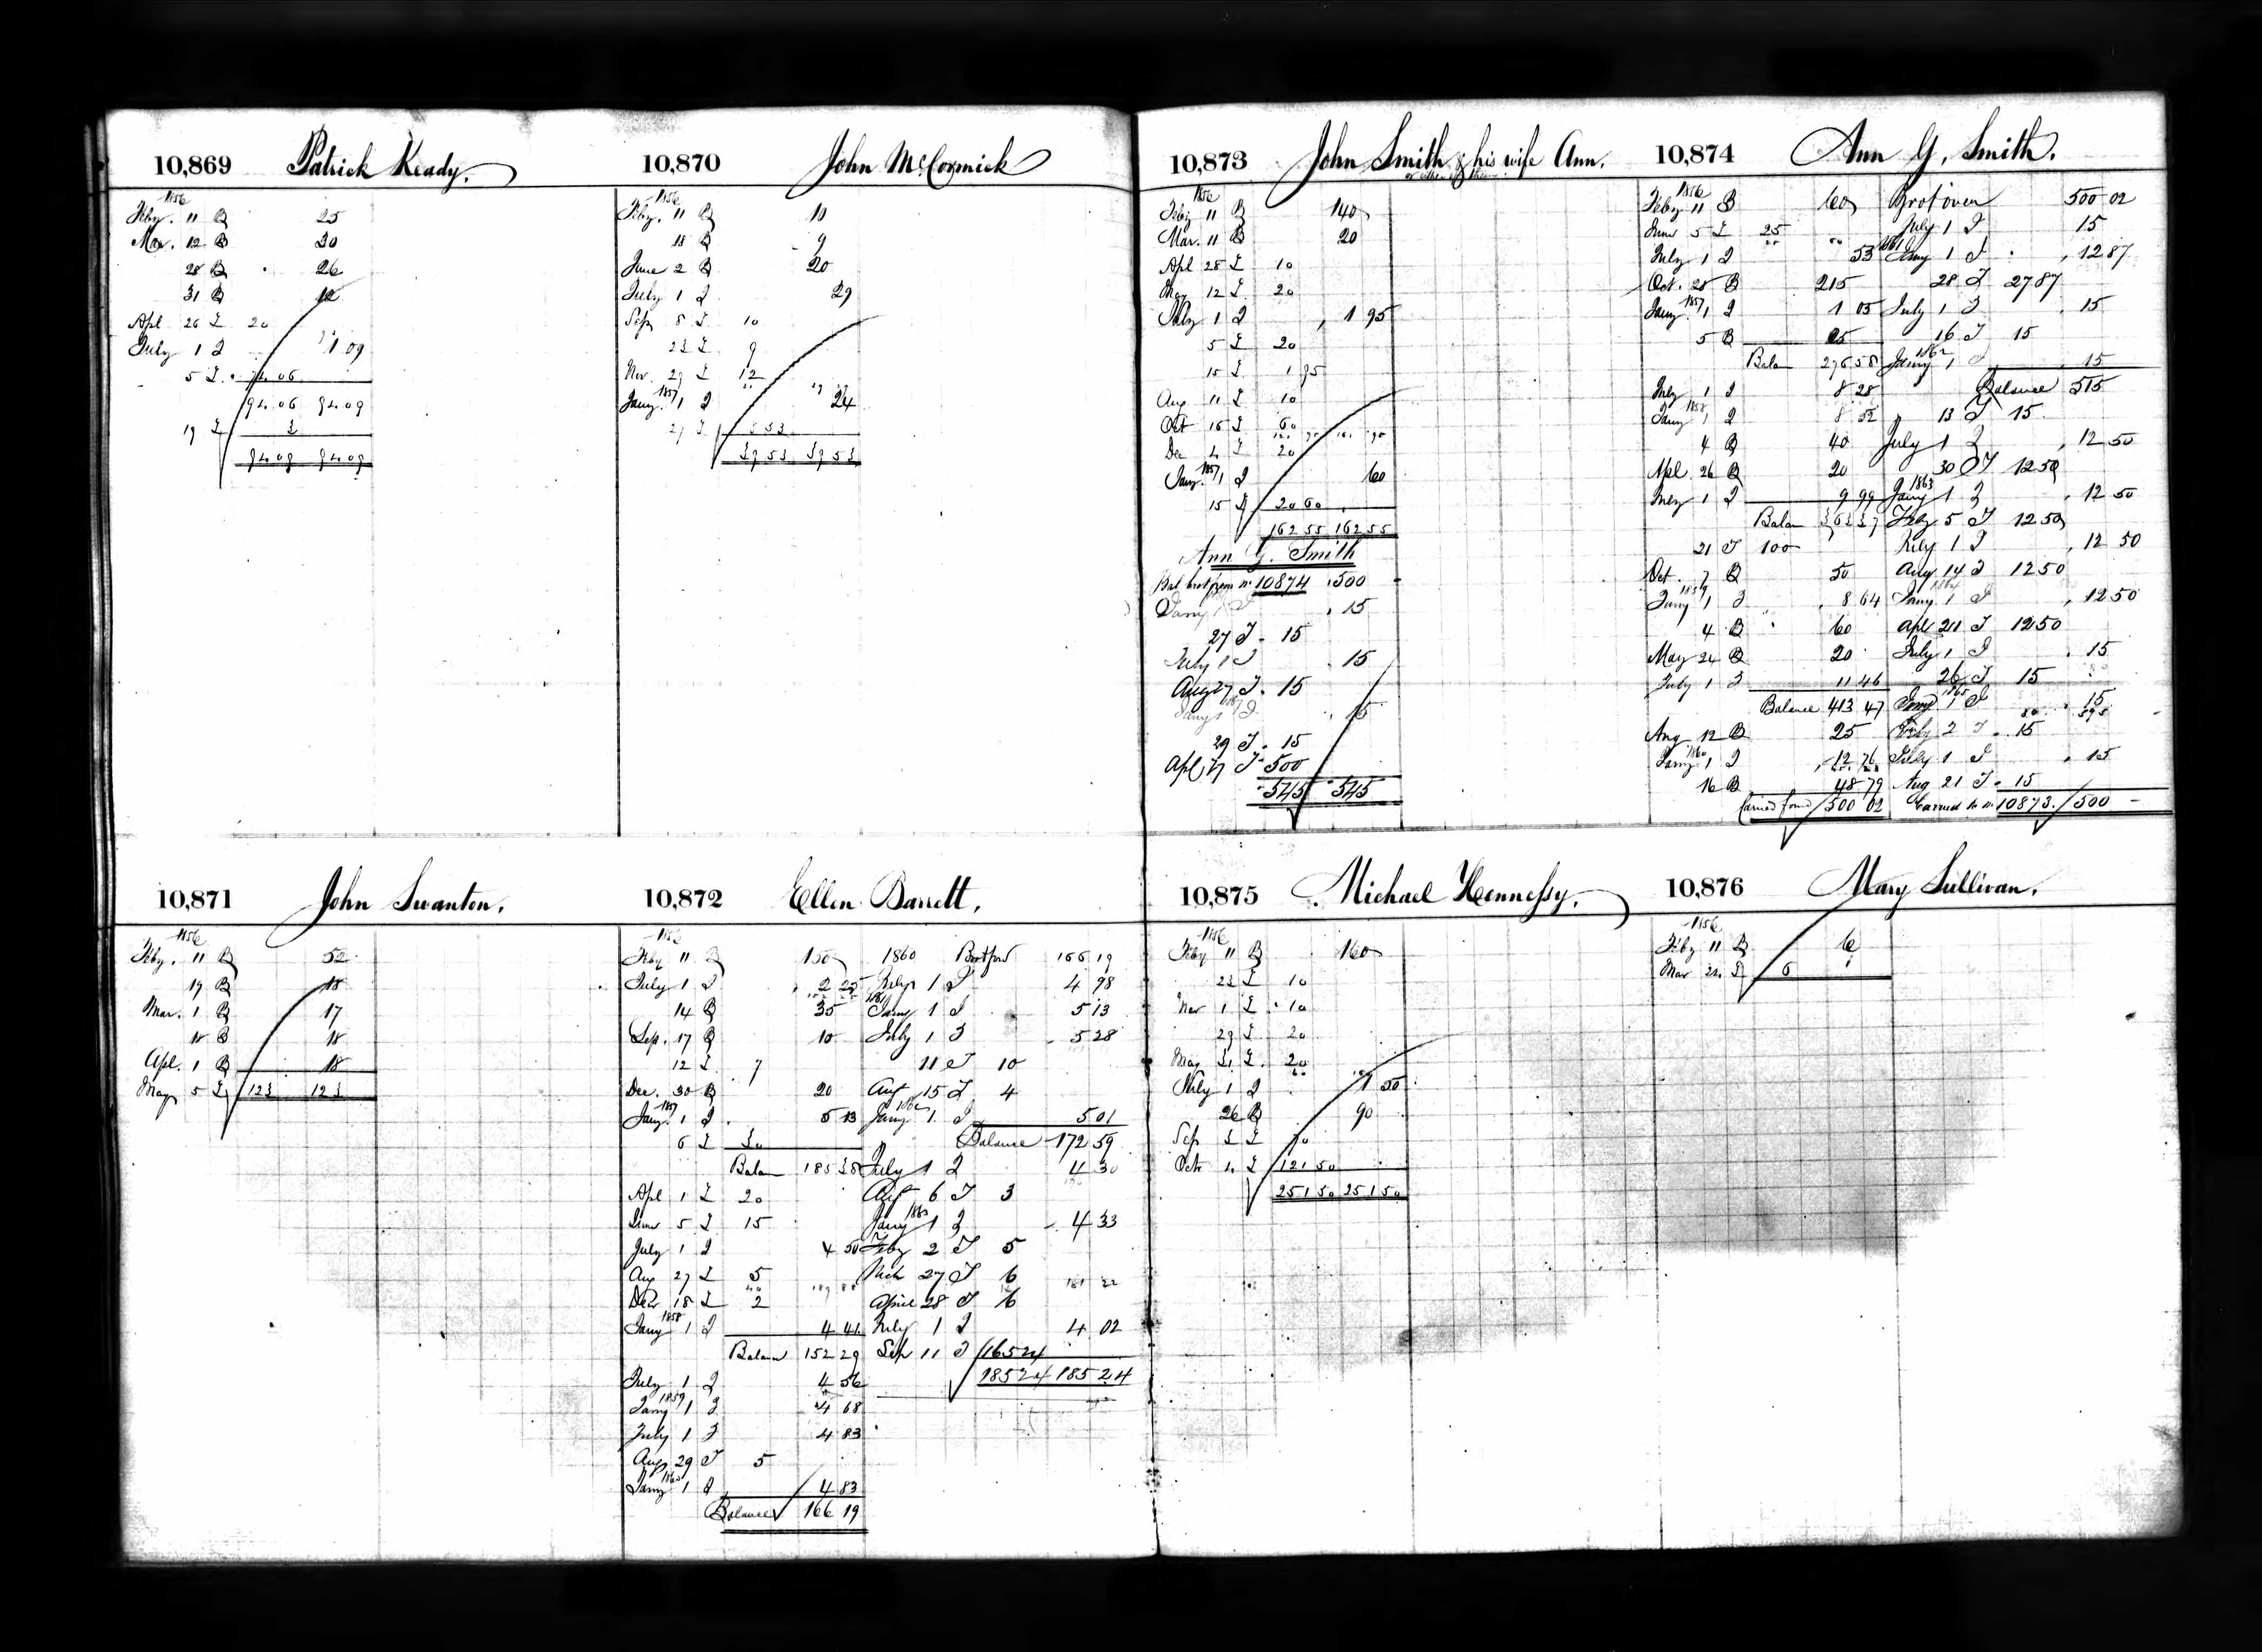 10,869 Patrick Keady.
1856
Feby. 11 B 25
Mar. 12 B 30
28 B 26
31 B 12
Apl 26 L 20
July 1 I 1 09
5 L 74 06
94 06 94 09
19 L 3
94 09 94 09
10,870 John McCormick
1856
Feby. 11 B 10
18 B 9
June 2 B 20
July 1 I 29
Sep 8 L 10
23 L 9
Nov. 29 L 12
1857
Jany. 1 I 24
27 L 8 53
39 53 39 53
10,871 John Swanton.
1856
Feby. 11 B 52
19 B 18
Mar. 1 B 17
18 B 18
Apl. 1 B 18
May 5 L 123 123
10,872 Ellen Barrett.
1856
Feby 11 B 150
July 1 I 2 25
14 B 35
Sep. 17 B 10
12 L 7
Dec. 30 B 20
1857
Jany. 1 I 5 13
6 L 30
Balan 185 38
Apl 1 L 20
June 5 L 15
July 1 I 4 50
Aug 27 L 5
Decr 18 L 2
1858
Jany 1 I 4 41
Balance 152 29
July 1 I 4 56
1859
Jany 1 I 4 68
July 1 I 4 83
Aug 29 T 5
1860
Jany 1 I 4 83
Balance 166 19
1860 Brotford 166 19
July 1 I 4 98
1861
Jany 1 I 5 13
July 1 I 5 28
11 T 10
Aug 15 L 4
1862
Jany 1 I 5 01
Balance 172 59
July 1 I 4 30
Aug 6 T 3
1863
Jany 1 I 4 33
Feby 2 T 5
Mch 27 T 6
April 28 T 6
July 1 I 4 02
Sep 11 T 165 24
185 24 185 24
10,873 John Smith & his wife Ann.
or either of them
1856
Feby 11 B 140
Mar. 11 B 20
Apl 28 L 10
May 12 L 20
July 1 I 1 95
5 L 20
15 L 1 95
Aug 11 L 10
Oct 16 L 60
Dec 4 L 20
1857
Jany. 1 I 60
15 L 20 60
162 55 162 55
Ann G. Smith
Bal brot from No 10874 500
Jany 1 I 15
27 T 15
July 1 I 15
Aug 27 T 15
Jany 1 I 15
29 T 15
Apl 17 T 500
545 545
10,874 Ann G. Smith.
1856
Feby 11 B 60
June 5 L 25
July 1 I 53
Oct. 28 B 215
1857
Jany. 1 I 1 05
5 B 25
Balan 276 58
July 1 I 8 28
1858
Jany 1 I 8 52
4 B 40
Apl. 26 B 20
July 1 I 9 99
Balan 363 37
21 T 100
Oct. 7 B 50
1859
Jany 1 I 8 64
4 B 60
May 24 B 20
July 1 I 11 46
Balance 413 47
Aug 12 B 25
1860
Jany 1 I 12 76
16 B 48 79
Carried ford 500 02
Brot over 500 02
July 1 I 15
1861
Jany 1 I 12 87
28 T 27 87
July 1 I 15
16 T 15
1862
Jany 1 I 15
Balance 515
13 T 15
July 1 I 12 50
30 T 12 50
1863
Jany 1 I 12 50
Feby 5 T 12 50
July 1 I 12 50
Aug 14 T 12 50
1864
Jany 1 I 12 50
Apl 21 T 12 50
July 1 I 15
26 T 15
1865
Jany 1 I 15
Feby 2 T 15
July 1 I 15
Aug 21 T 15
Carried to No 10873 500
10,875 Michael Hennessy.
1856
Feby 11 B 160
23 L 10
Mar 1 L 10
29 L 20
May 31 L 20
July 1 I 1 50
26 B 90
Sep 3 L 70
Octr 4 L 121 50
251 50 251 50
10,876 Mary Sullivan.
1856
Feby 11 B 6
Mar 22 L 6